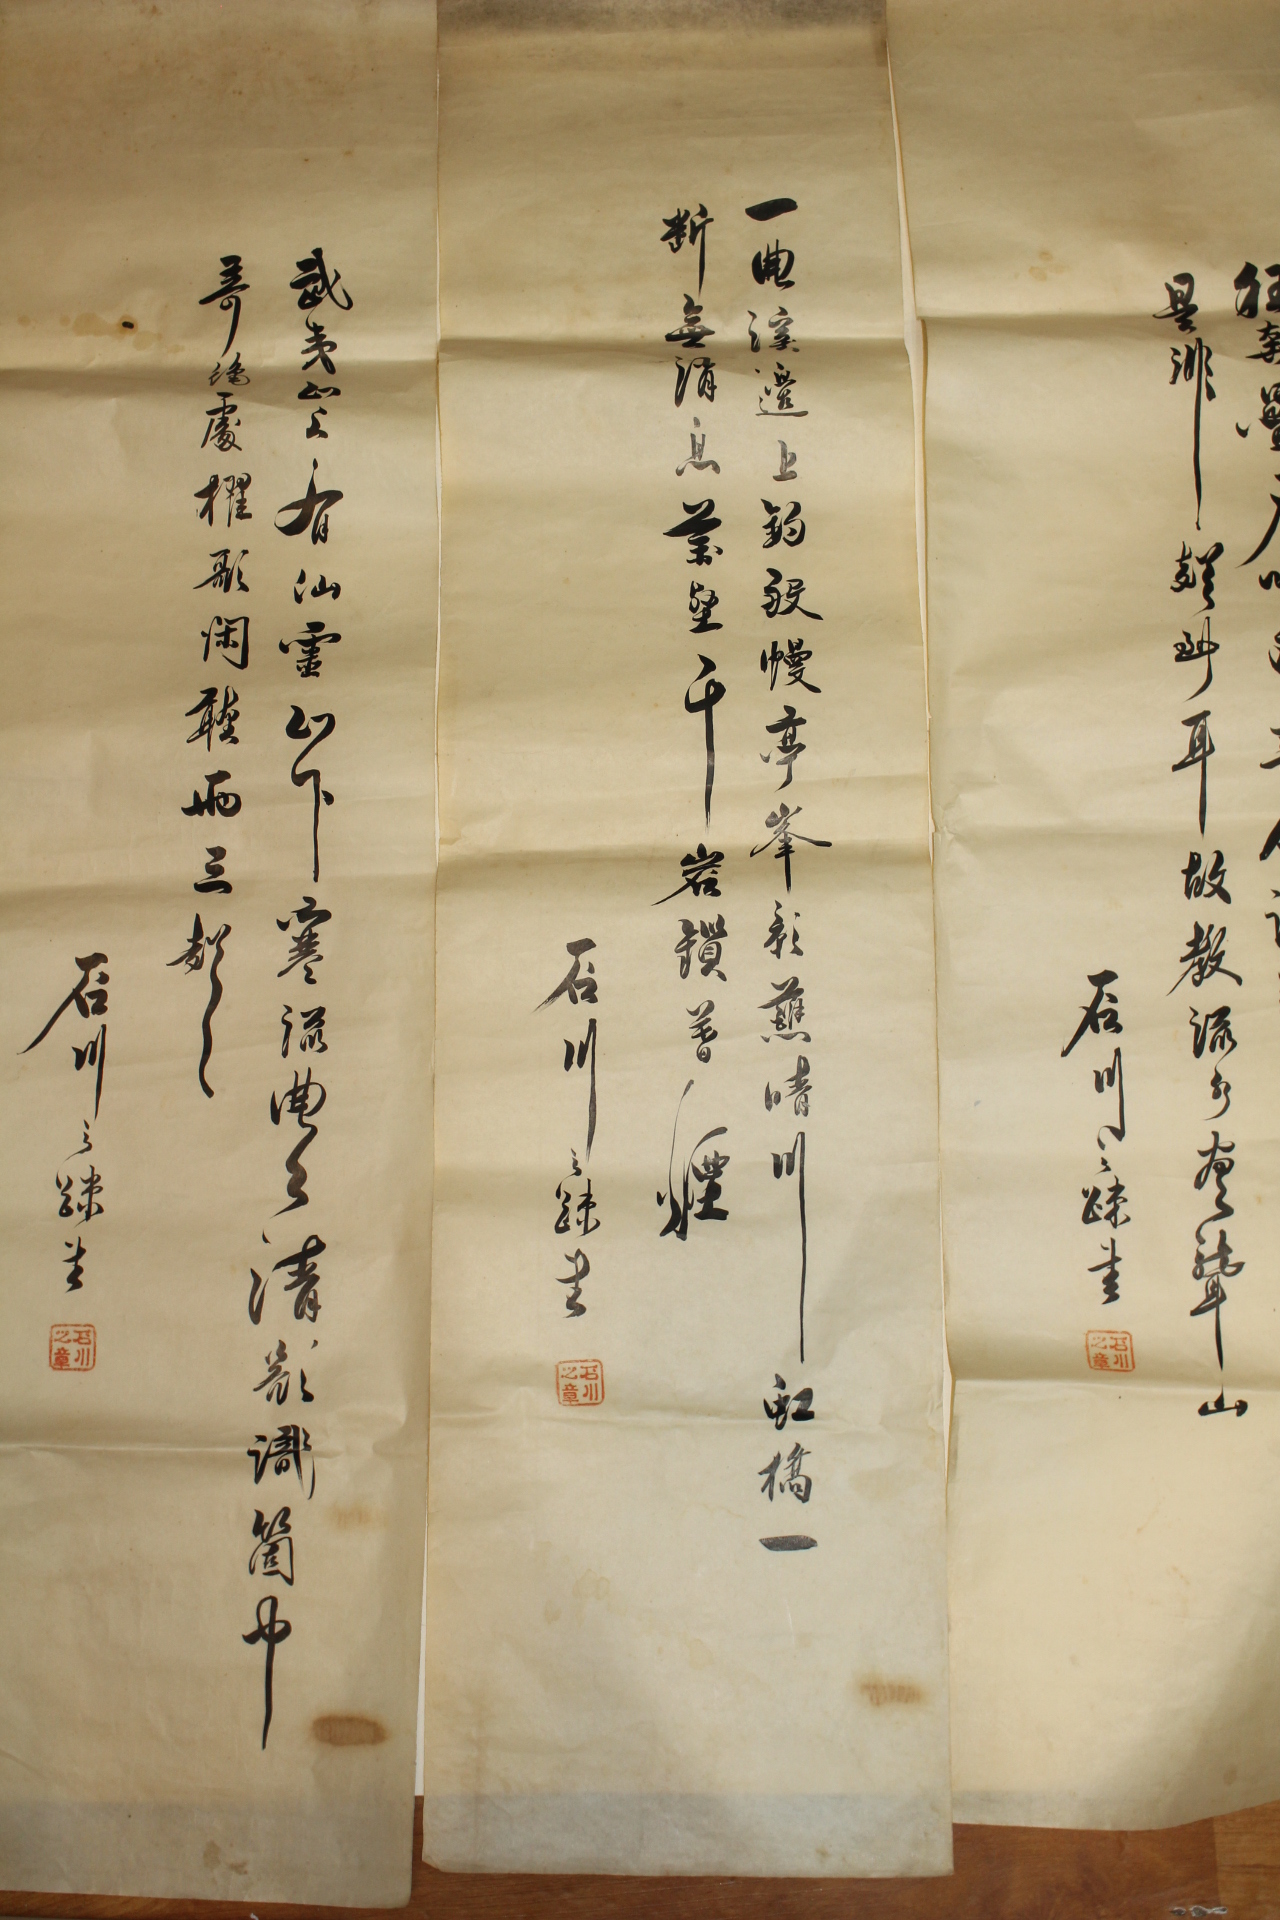 狂奔疊石吼重人
是非聲到耳故教流水盡聾山
石川之疎書
石川之章
一曲溪邊上釣船幔亭峯影蘸晴川虹橋一
斷無消息萬壑千岩鎖暮煙
石川之疎書
石川之章
武夷山上有仙靈山下寒流曲曲清欲識箇中
奇絶處櫂歌閑聽兩三聲
石川之疎書
石川之章